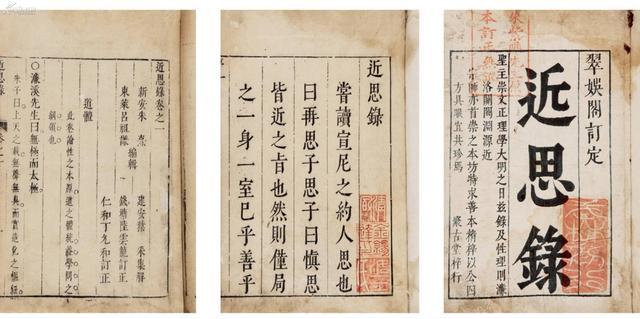 翠娛閣訂定
近思錄
聖主崇文正理學大明之日玆錄及性理則濂
洛關閩淵源近
宗師亦首崇之本坊特求善本精梓以公四
方具眼宜共珍焉
聚古堂梓行
近思錄
嘗讀宣尼之約人思也
曰再思子思子曰慎思
皆近之旨也然則僅局
之一身一室已乎善乎
近思錄卷之一
新安朱熹
東萊呂祖謙
編輯
建安葉采集解
錢塘陸雲龍訂正
仁和丁允和訂正
道體
此卷論性之本原道之體統蓋學問之
綱領也
○濂溪先生曰無極而太極
朱子曰上天之載無聲無臭而實造化之樞紐
近思錄
卷之一